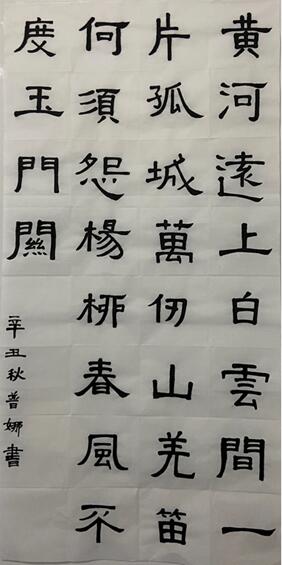 黄河遠上白雲間一
片孤城萬仞山羌笛
何須怨楊栁春風不
度玉門關
辛丑秋普娜書